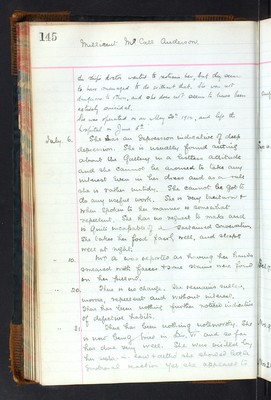 145
Millicent McCall Anderson.
the ship's doctor wanted to restrain her, but they seem
to have managed to do without that. She was not
dangerous to others, and she does not seem to have been
actively suicidal.
She was operated on on May 20th 1910, and left the
hospital on June 5th
July. 6. She has an expression indicative of deep
depression. She is usually found sitting
about the Gallery in a listless attitude
and she cannot be aroused to take any
interest even in her dress and as a rule
she is rather untidy. She cannot be got to
do any useful work. She is very
when spoken to her manner is somewhat
repellent. She has no request to make and
is quite incapable of a sustained conversation.
She takes her food fairly well, and sleeps
well at night.
" 10. Mrs A was reported as having her hands
smeared with faeces & some stains were found
on her pillow.
" 20. There is no change. She remains sullen,
morose, repellent and without interest.
There has been nothing further noted indicative
of defective habits.
" 21. There has been nothing noteworthy. She
is now being in and so far
has done very well. She was visited by
her
emotional reaction yet she appeared to